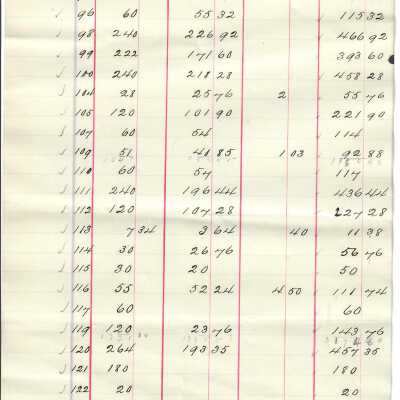 ✓ 96 60 55 32 115 32
✓ 98 240 226 92 ✓ 466 92
✓ 99 222 171 60 393 60
✓ 100 240 218 28 ✓ 458 28
✓ 104 28 25 76 2 ✓ 55 76
✓ 105 120 101 90 ✓ 221 90
✓ 107 60 54 ✓ 114
✓ 109 51 40 85 1 03 ✓ 92 88
✓ 110 60 57 ✓ 117
✓ 111 240 196 44 ✓ 436 44
✓ 112 120 107 28 ✓ 227 28
✓ 113 7 34 3 64 40 ✓ 11 38
✓ 114 30 26 76 ✓ 56 76
✓ 115 30 20 ✓ 50
✓ 116 55 52 24 4 50 ✓ 111 74
✓ 117 60 60
✓ 119 120 23 76 ✓ 143 76
✓ 120 264 193 35 ✓ 457 35
✓ 121 180 180
✓ 122 20 20